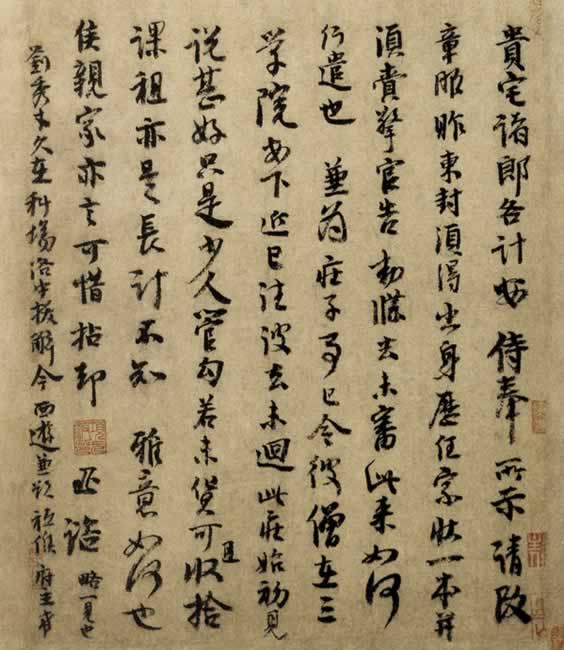 貴宅諸郎各計安侍奉所示請改
章服昨東封須得出身歷任家狀一本并
須賫擎官告勅牒去未審此來如何
行遣也兼為庄子事已令彼僧在三
学院安下近已往彼去未迴此庄始初見
说甚好只是少人管勾若未貨可且收拾
课租亦是長計不知雅意如何也
侯親家亦言可惜拈却 略一見也
劉秀才久在科場洛中拔解今西遊兼欲祗候府主希